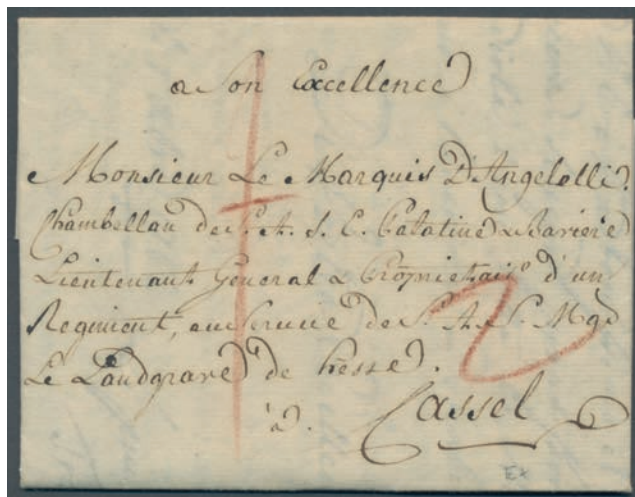 a Son Excellence
Monsieur Le Marquis D'Angelelli.
Chambellan de S. A. S. E. Palatine & Baviere
Lieutenant General & Proprietair^e d'un
Regiment, au Service de S. A. S. Mgr
Le Landgrave de Hesse.
à. Cassel
2
Ex